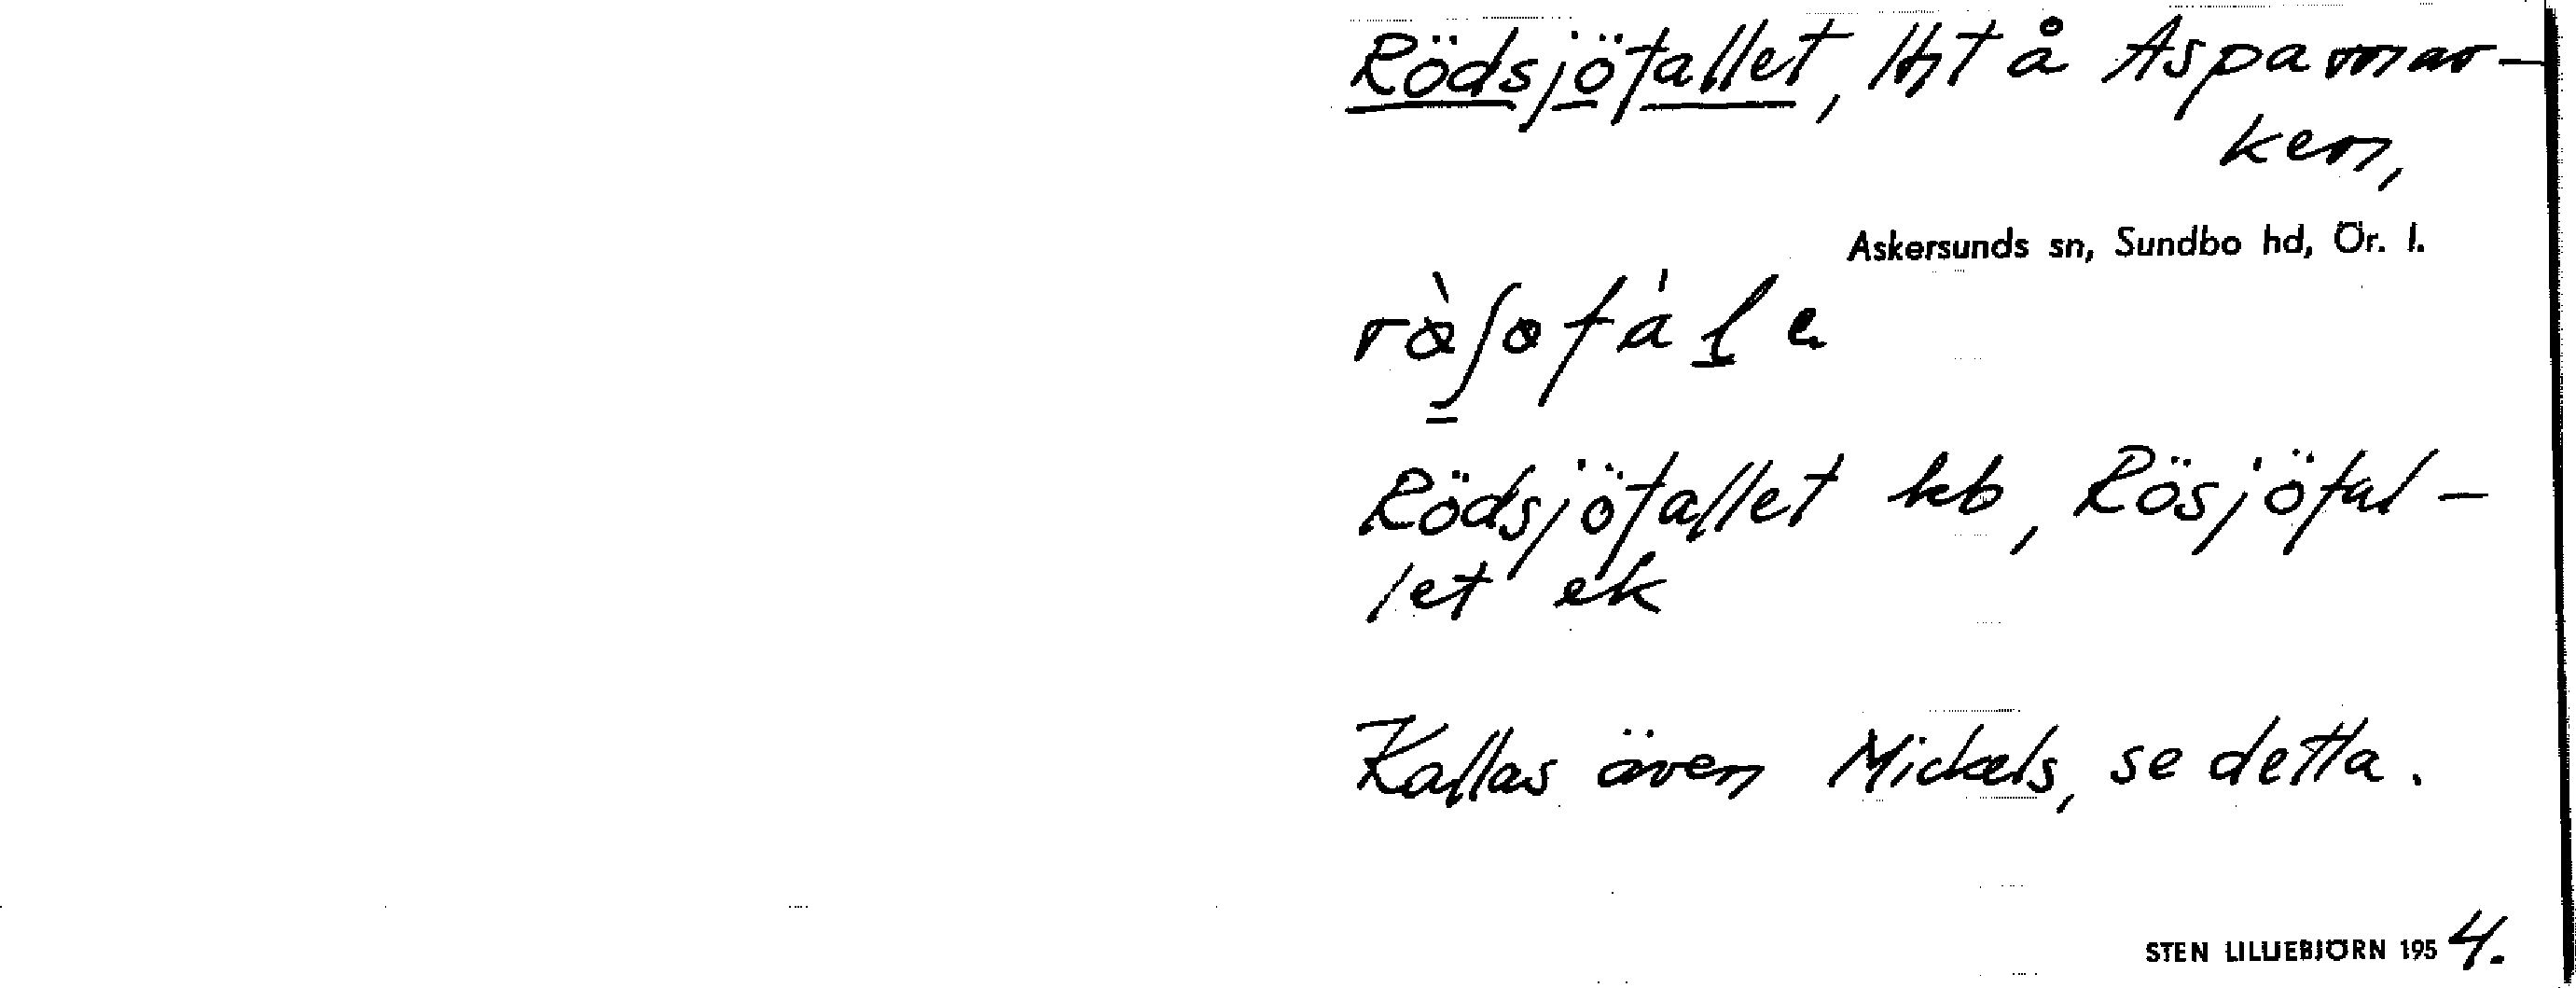 Rödsjöfallet, lht å Aspamar-
ken,
Askersunds sn, Sundbo hd, Ör. l.
Rödsjöfallet kb, Rösjöfal-
let ek
Kallas även Mickels, se detta.
STEN LILLIEBJÖRN 1954.